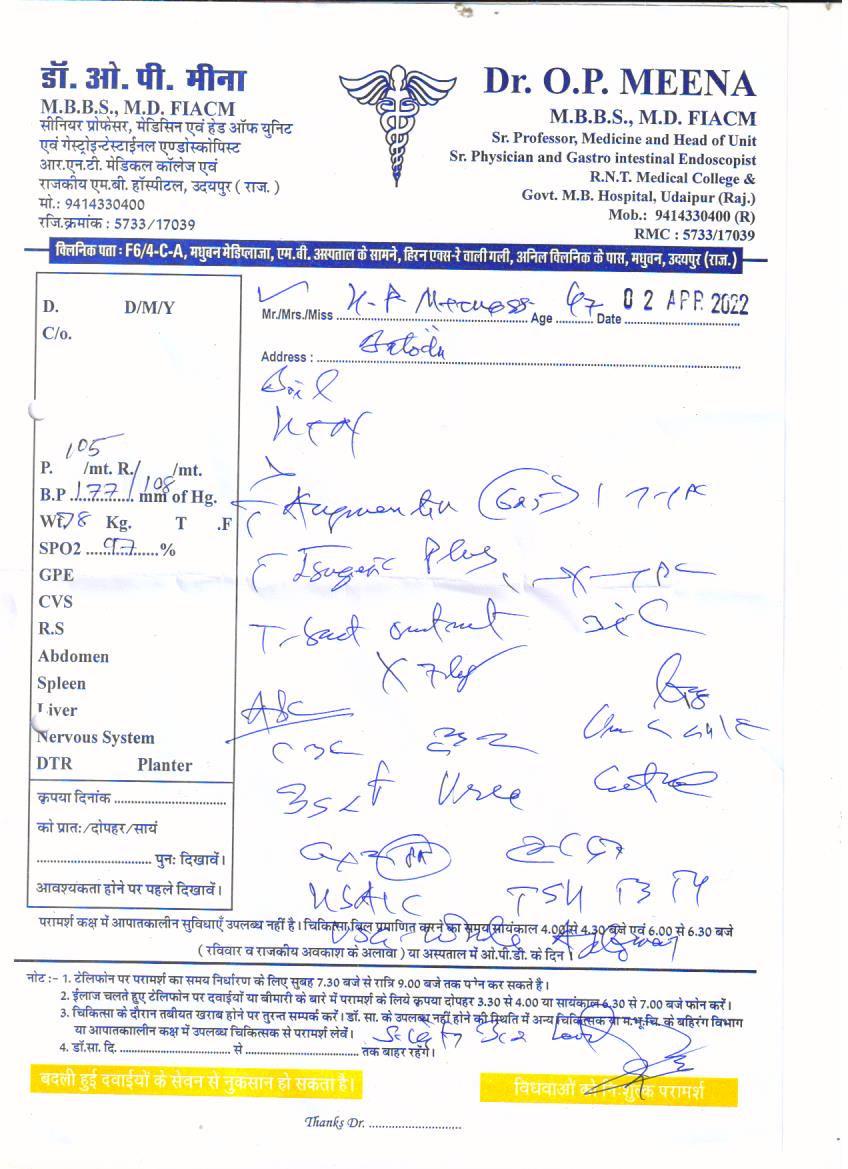 डॉ. ओ. पी. मीना
M.B.B.S., M.D. FIACM
सीनियर प्रोफेसर, मेडिसिन एवं हेड ऑफ युनिट
एवं गेस्ट्रोइन्टेस्टाईनल एण्डोस्कोपिस्ट
आर.एन.टी. मेडिकल कॉलेज एवं
राजकीय एम.बी. हॉस्पीटल, उदयपुर ( राज. )
मो.: 9414330400
रजि.क्रमांक : 5733/17039
Dr. O.P. MEENA
M.B.B.S., M.D. FIACM
Sr. Professor, Medicine and Head of Unit
Sr. Physician and Gastro intestinal Endoscopist
R.N.T. Medical College &
Govt. M.B. Hospital, Udaipur (Raj.)
Mob.: 9414330400 (R)
RMC : 5733/17039
क्लिनिक पता : F6/4-C-A, मधुबन मेडिप्लाजा, एम.बी. अस्पताल के सामने, हिरन एक्स-रे वाली गली, अनिल क्लिनिक के पास, मधुवन, उदयपुर (राज.)
D. D/M/Y
C/o.
Mr./Mrs./Miss Age 67 Date 02 APR 2022
Address :
Boil
HTN
P. 105 /mt. R./ /mt.
B.P 177/108 mm of Hg.
Wt. 78 Kg. T .F
SPO2 97 %
GPE
CVS
R.S
Abdomen
Spleen
Liver
Nervous System
DTR Planter
Augmentin (625) 1
Plus
T-bact ointment
X 7 day
CBC
Urea
TSH T3 T4
USG-Whole Abdomen
कृपया दिनांक
को प्रातः/दोपहर/सायं
पुनः दिखावें।
आवश्यकता होने पर पहले दिखावें।
परामर्श कक्ष में आपातकालीन सुविधाएँ उपलब्ध नहीं है। चिकित्सा बिल प्रमाणित करने का समय सायंकाल 4.00 से 4.30 बजे एवं 6.00 से 6.30 बजे
( रविवार व राजकीय अवकाश के अलावा ) या अस्पताल में ओ.पी.डी. के दिन।
नोट :- 1. टेलिफोन पर परामर्श का समय निर्धारण के लिए सुबह 7.30 बजे से रात्रि 9.00 बजे तक फोन कर सकते है।
2. ईलाज चलते हुए टेलिफोन पर दवाईयों या बीमारी के बारे में परामर्श के लिये कृपया दोपहर 3.30 से 4.00 या सायंकाल 6.30 से 7.00 बजे फोन करें।
3. चिकित्सा के दौरान तबीयत खराब होने पर तुरन्त सम्पर्क करें। डॉ. सा. के उपलब्ध नहीं होने की स्थिति में अन्य चिकित्सक या म.भू.चि. के बहिरंग विभाग
या आपातकाालीन कक्ष में उपलब्ध चिकित्सक से परामर्श लेवें।
4. डॉ.सा. दि. से तक बाहर रहेंगे।
बदली हुई दवाईयों के सेवन से नुकसान हो सकता है।
विधवाओं को निःशुल्क परामर्श
Thanks Dr.